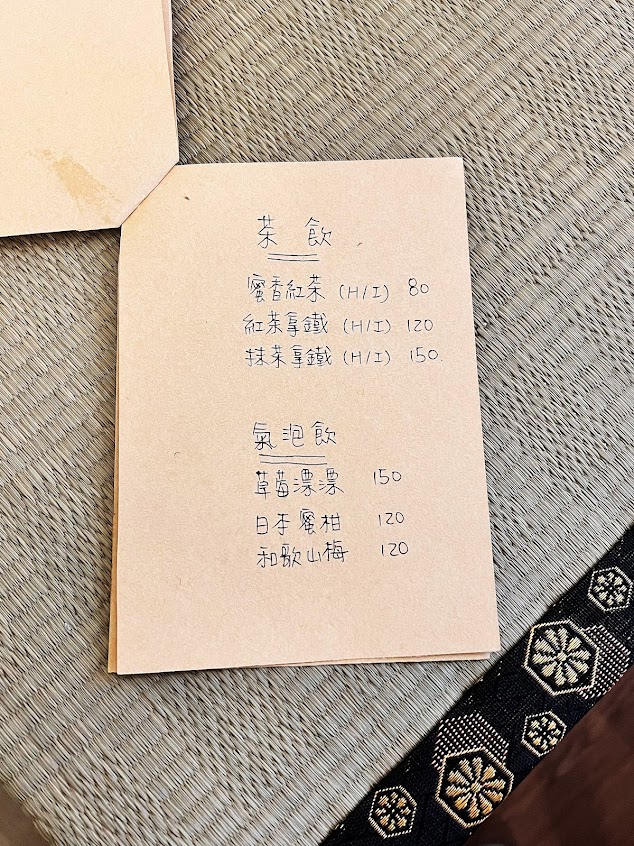 茶飲
蜜香紅茶 (H/I) 80
紅茶拿鐵 (H/I) 120
抹茶拿鐵 (H/I) 150
氣泡飲
草莓漂漂 150
日本蜜柑 120
和歌山梅 120